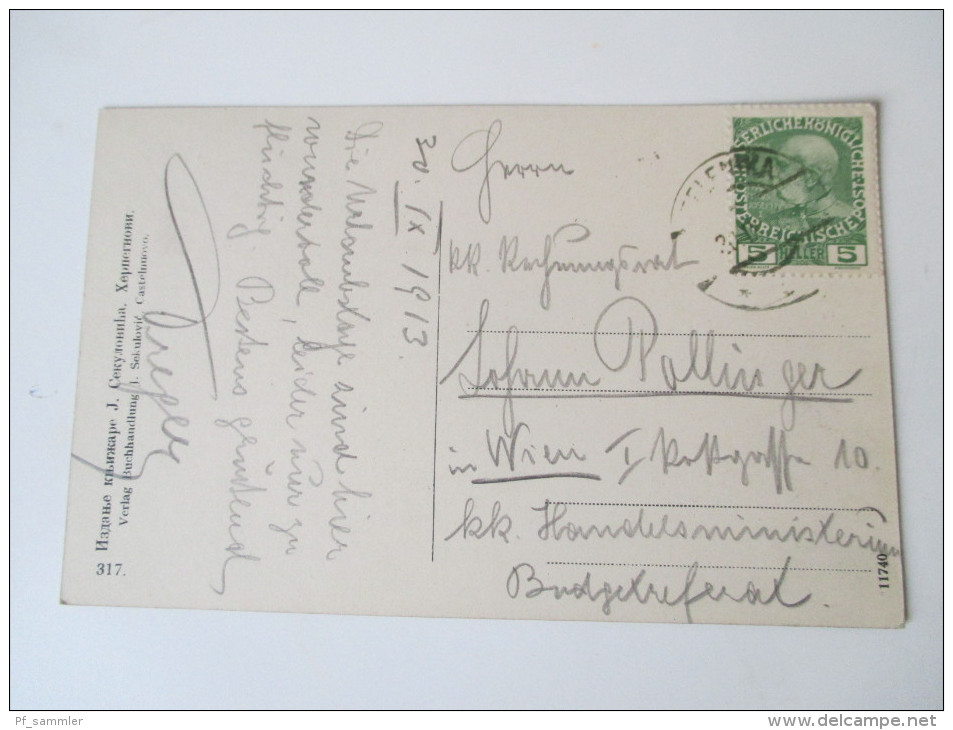 30. IX. 1913.
Die Naturwunder sind hier
wundervoll, leider nur zu
flüchtig. Bestens grüßend
Издање књижаре Ј. Секуловића, Херцегнови.
Verlag Buchhandlung J. Sekulović, Castelnuovo.
317.
Herrn
kk. Rechnungsrat
Johann Pollinger
in Wien I, Postgasse 10.
kk. Handelsministerium
Budgetreferat.
11740
KAISERLICHE KÖNIGLICHE
ÖSTERREICHISCHE POST
5 HELLER 5
Pf_sammler
www.delcampe.net